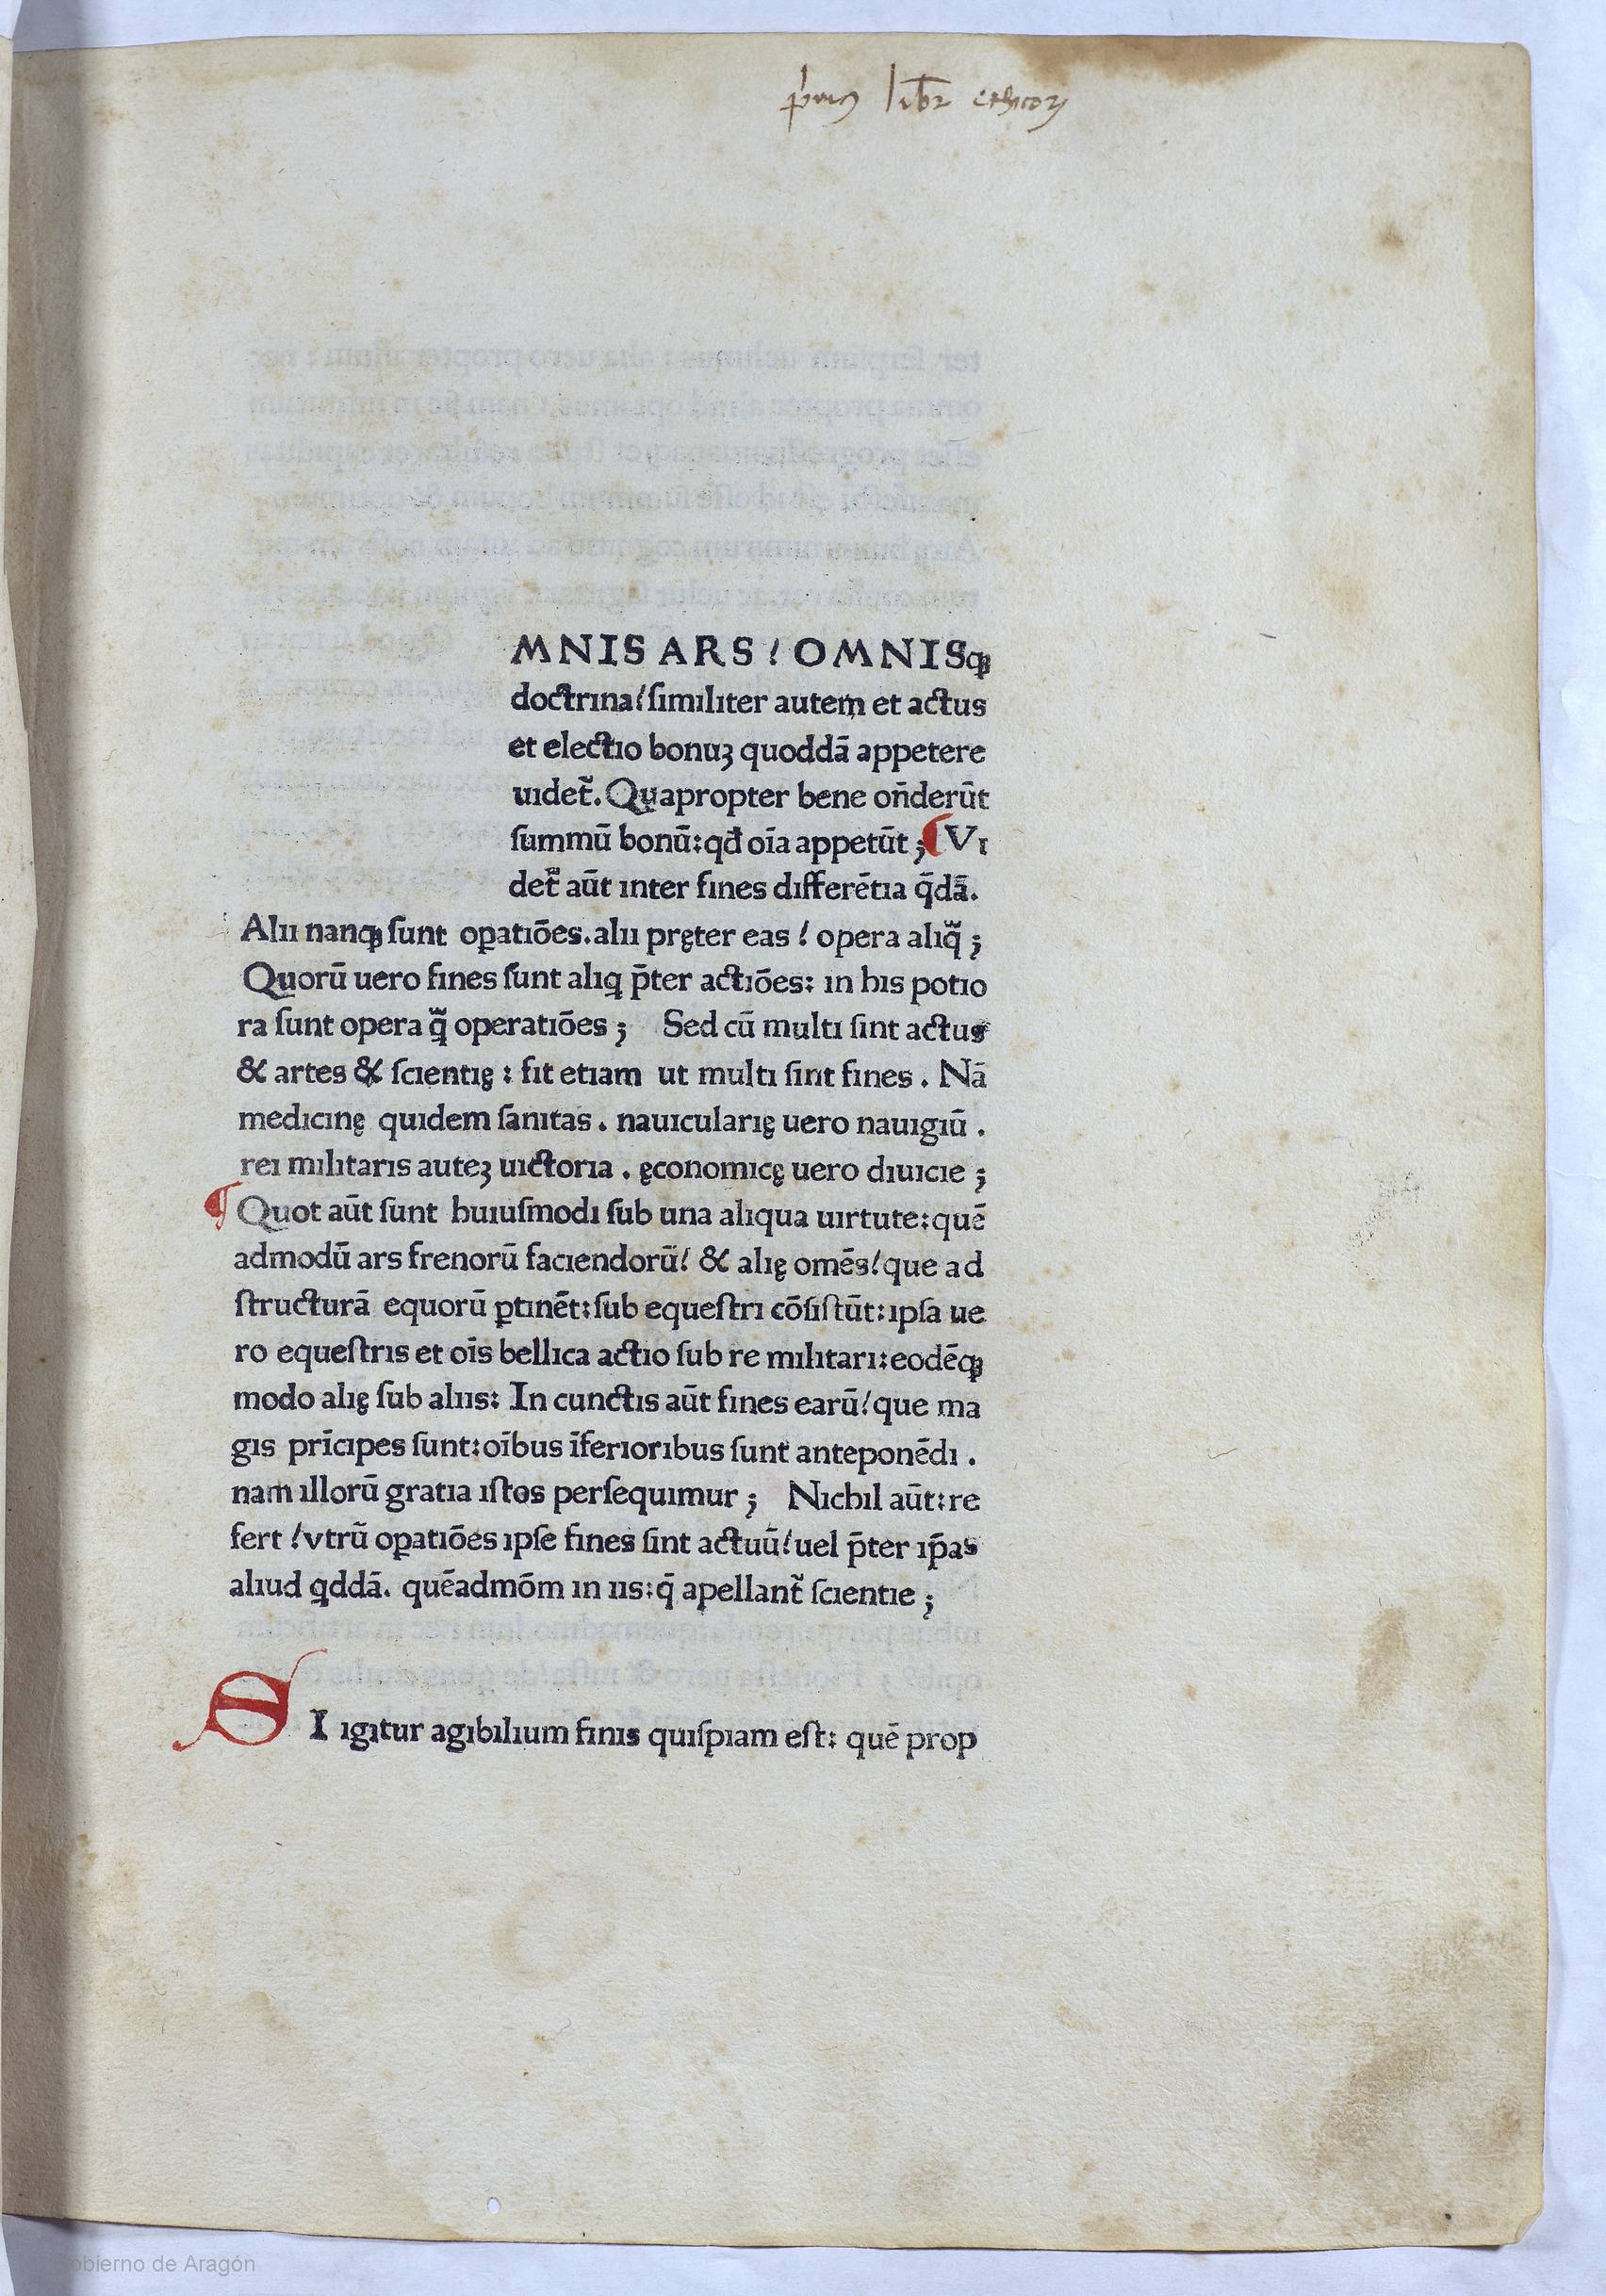 pͥmus libꝛ ethicoꝝ
MNIS ARS / OMNISqꝫ
doctrina/ſimiliter autem et actus
et electio bonuꝫ quoddā appetere
uidet᷑. Quapropter bene on̄derūt
ſummū bonū:qđ oīa appetūt ; Vı
det᷑ aūt inter fines differētia q̄dā.
Alii nanqꝫ ſunt oꝑatiōes.alii pręter eas / opera aliq̄ ;
Quorū uero fines ſunt aliq p̄ter actiōes: in his potio
ra ſunt opera q̄ operatiōes ; Sed cū multi ſint actus
& artes & ſcientię : fit etiam ut multi ſint fines . Nā
medicinę quidem ſanitas . nauicularię uero nauigiū .
rei militaris auteꝫ uictoria . ęconomicę uero diuicie ;
Quot aūt ſunt huiuſmodi ſub una aliqua uirtute:quē
admodū ars frenorū faciendorū/ & alię omēs/que ad
ſtructurā equorū ꝑtinēt:ſub equeſtri cōſiſtūt:ipſa ue
ro equeſtris et oīs bellica actio ſub re militari:eodēqꝫ
modo alię ſub aliis: In cunctis aūt fines earū/que ma
gis prīcipes ſunt:oībus īferioribus ſunt anteponēdi .
nam illorū gratia iſtos perſequimur ; Nichil aūt:re
fert /vtrū oꝑatiōes ipſe fines ſint actuū/uel p̄ter ip̄as
aliud qddā. quēadmōm in iis:q̄ apellant᷑ ſcientie ;
SI igitur agibilium finis quiſpiam eſt: quē prop
Gobierno de Aragón